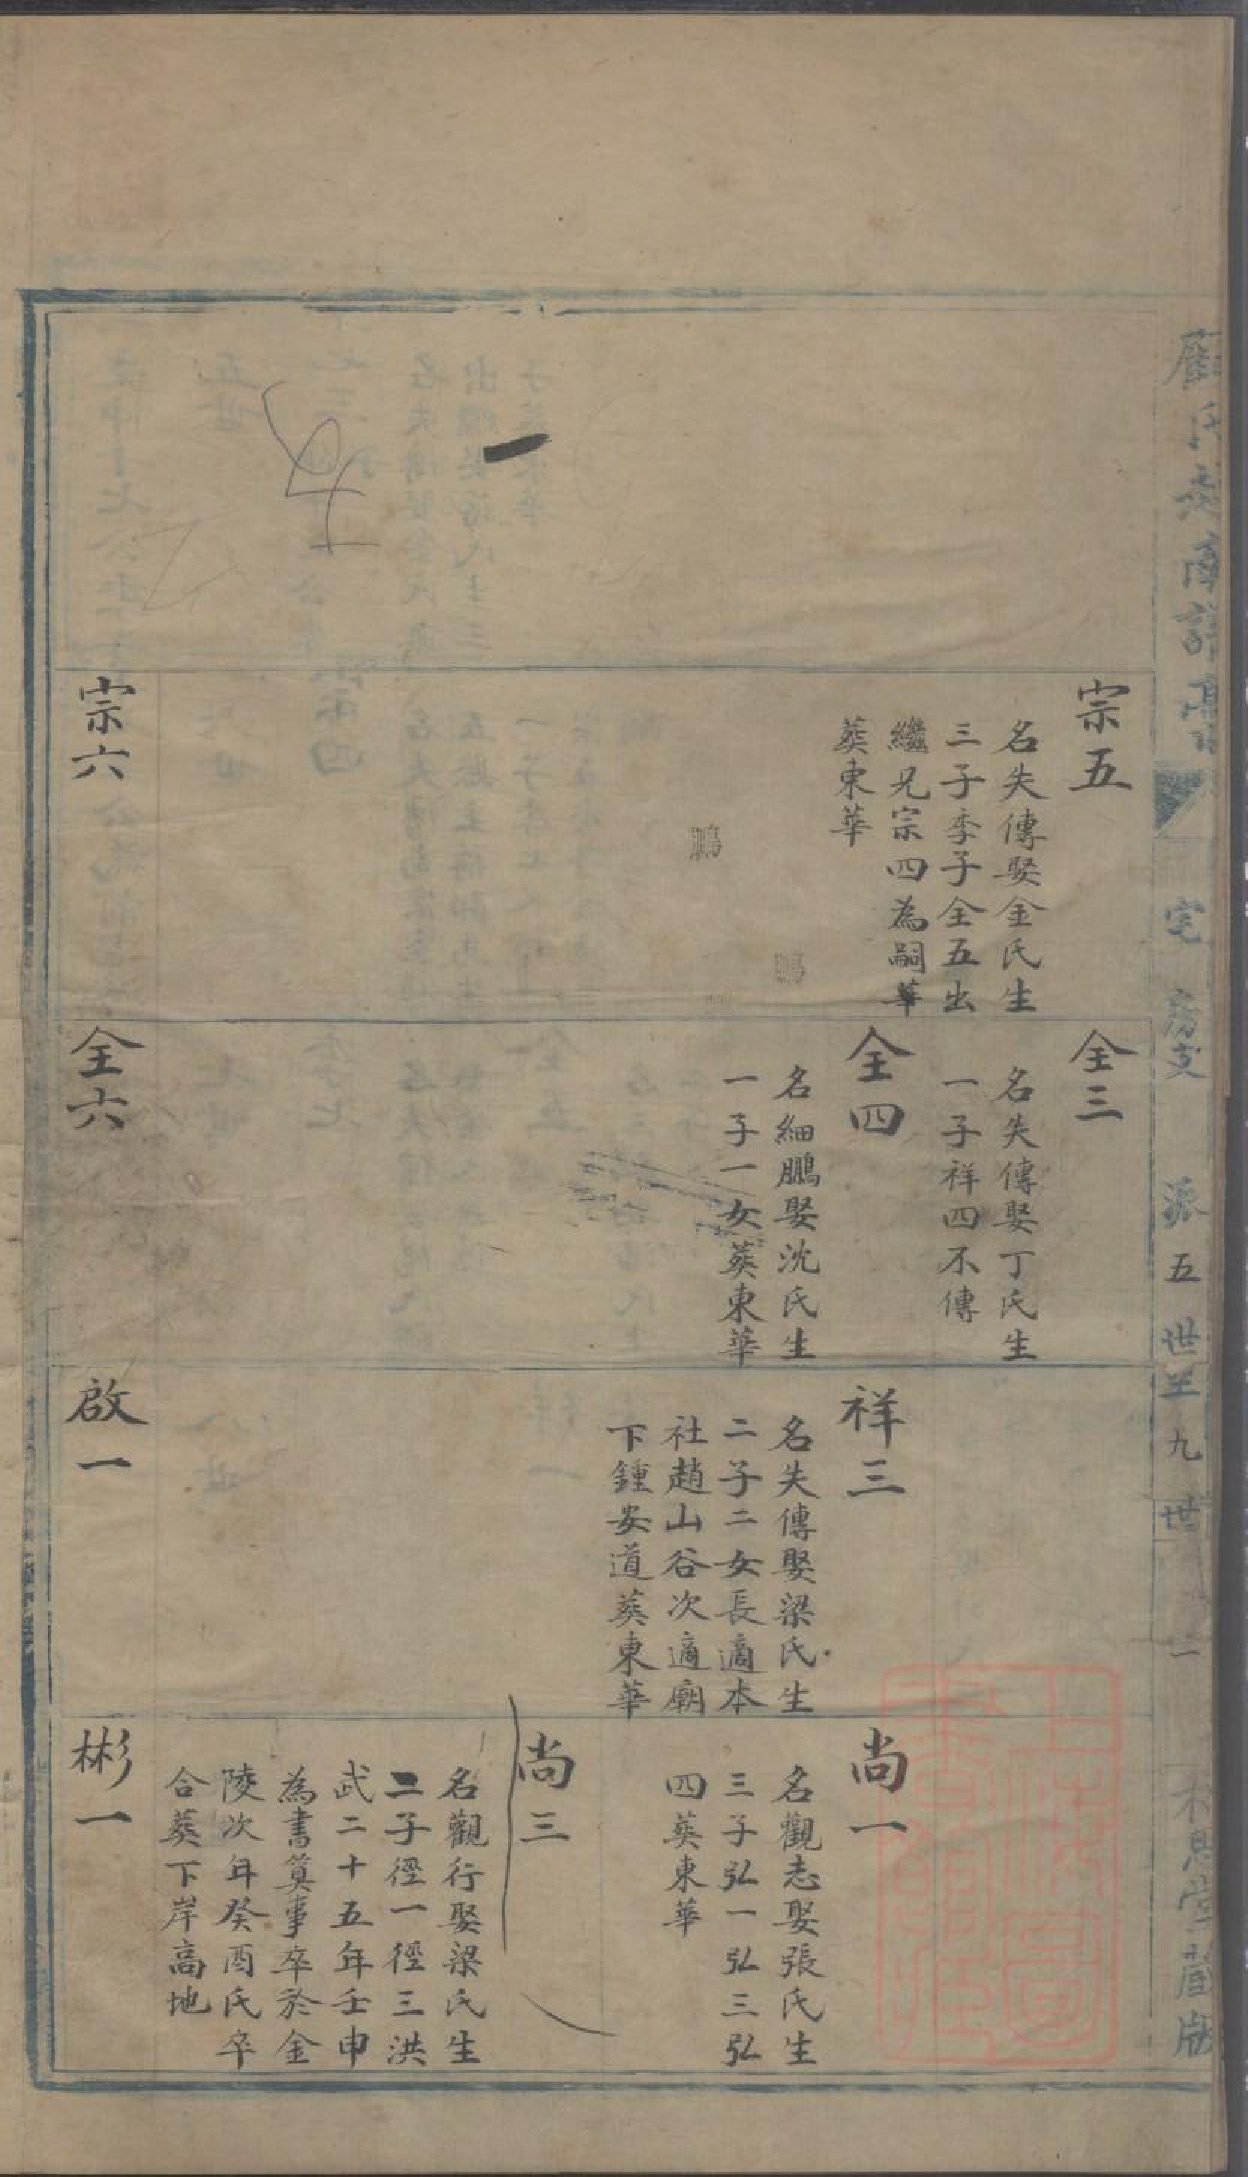 宅
房支
派五世至九世
二
宗五
名失傳娶金氏生
三子季子全五出
繼兄宗四為嗣華
葬東華
鵬
鵬
宗六
全三
名失傳娶丁氏生
一子祥四不傳
全四
名細鵬娶沈氏生
一子一女葬東華
全六
祥三
名失傳娶梁氏生
二子二女長適本
社趙山谷次適廟
下鍾安道葬東華
啟一
尚一
名觀志娶張氏生
三子弘一弘三弘
四葬東華
尚三
名觀行娶梁氏生
二子徑一徑三洪
武二十五年壬申
為書算事卒於金
陵次年癸酉氏卒
合葬下岸高地
彬一